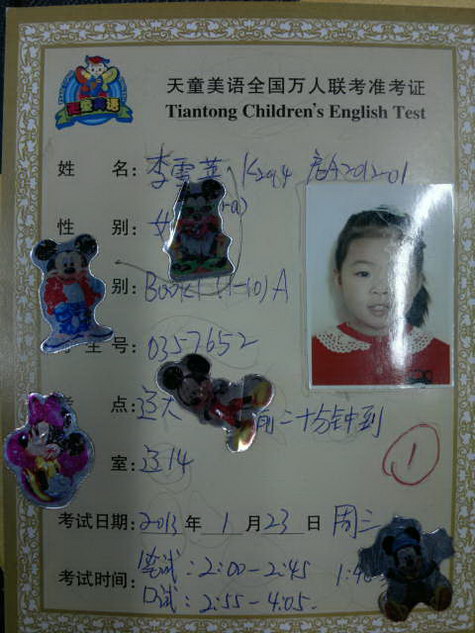 天童美语
天童美语全国万人联考准考证
Tiantong Children's English Test
姓 名: 李雪
性 别: 女
别: Book1 (1-10) A
号: 0357652
点:
前二十分钟到
室: 14
1
考试日期: 2013 年 1 月 23 日 周三
考试时间: 笔试: 2:00-2:45
口试: 2:55-4:05.